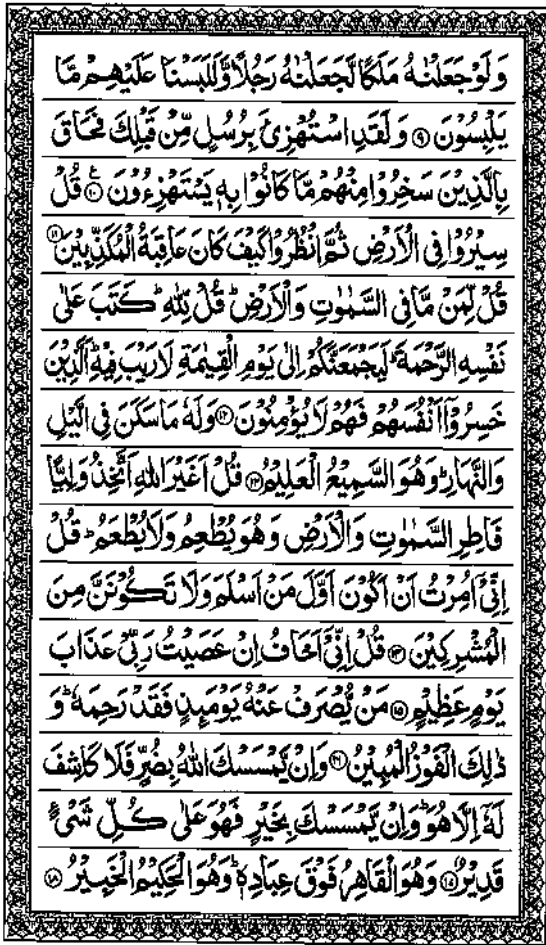 وَلَوْ جَعَلْنٰهُ مَلَكًا لَّجَعَلْنٰهُ رَجُلًا وَّلَلَبَسْنَا عَلَيْهِمْ مَّا
يَلْبِسُوْنَ ۹ وَلَقَدِ اسْتُهْزِئَ بِرُسُلٍ مِّنْ قَبْلِكَ فَحَاقَ
بِالَّذِيْنَ سَخِرُوْا مِنْهُمْ مَّا كَانُوْا بِهٖ يَسْتَهْزِءُوْنَ ۱۰ ع قُلْ
سِيْرُوْا فِى الْاَرْضِ ثُمَّ انْظُرُوْا كَيْفَ كَانَ عَاقِبَةُ الْمُكَذِّبِيْنَ ۱۱
قُلْ لِّمَنْ مَّا فِى السَّمٰوٰتِ وَالْاَرْضِ ؕ قُلْ لِّلّٰهِ ؕ كَتَبَ عَلٰى
نَفْسِهِ الرَّحْمَةَ ؕ لَيَجْمَعَنَّكُمْ اِلٰى يَوْمِ الْقِيٰمَةِ لَا رَيْبَ فِيْهِ ؕ اَلَّذِيْنَ
خَسِرُوْۤا اَنْفُسَهُمْ فَهُمْ لَا يُؤْمِنُوْنَ ۱۲ وَلَهٗ مَا سَكَنَ فِى الَّيْلِ
وَالنَّهَارِ ؕ وَهُوَ السَّمِيْعُ الْعَلِيْمُ ۱۳ قُلْ اَغَيْرَ اللّٰهِ اَتَّخِذُ وَلِيًّا
فَاطِرِ السَّمٰوٰتِ وَالْاَرْضِ وَهُوَ يُطْعِمُ وَلَا يُطْعَمُ ؕ قُلْ
اِنِّىْۤ اُمِرْتُ اَنْ اَكُوْنَ اَوَّلَ مَنْ اَسْلَمَ وَلَا تَكُوْنَنَّ مِنَ
الْمُشْرِكِيْنَ ۱۴ قُلْ اِنِّىْۤ اَخَافُ اِنْ عَصَيْتُ رَبِّىْ عَذَابَ
يَوْمٍ عَظِيْمٍ ۱۵ مَنْ يُّصْرَفْ عَنْهُ يَوْمَئِذٍ فَقَدْ رَحِمَهٗ ؕ وَ
ذٰلِكَ الْفَوْزُ الْمُبِيْنُ ۱۶ وَاِنْ يَّمْسَسْكَ اللّٰهُ بِضُرٍّ فَلَا كَاشِفَ
لَهٗۤ اِلَّا هُوَ ؕ وَاِنْ يَّمْسَسْكَ بِخَيْرٍ فَهُوَ عَلٰى كُلِّ شَىْءٍ
قَدِيْرٌ ۱۷ وَهُوَ الْقَاهِرُ فَوْقَ عِبَادِهٖ ؕ وَهُوَ الْحَكِيْمُ الْخَبِيْرُ ۱۸